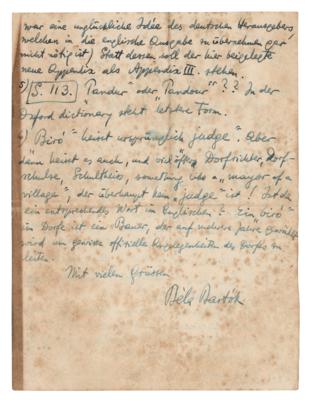 war eine unglückliche Idee des deutschen Herausgebers,
welchen in die englische Ausgabe zu übernehmen gar
nicht nötig ist) Statt dessen soll der hier beigelegte
neue Appendix als Appendix III stehen.
5) S. 113. "Pandur" oder "Pandour"?? In der
Oxford dictionary steht letztere Form.
"Biró" heisst ursprünglich "judge". Aber
dann heisst es auch, und viel öfter, Dorfrichter, Dorf-
schulze, Schultheiss, something like a "mayor of a
village", der überhaupt kein "judge" ist! Ist da
ein entsprechendes Wort im Englischen? Ein "biró"
im Dorfe ist ein Bauer, der auf mehrere Jahre gewählt
wird um gewisse offizielle Angelegenheiten des Dorfes zu
leiten.
Mit vielen Grüssen
Béla Bartók